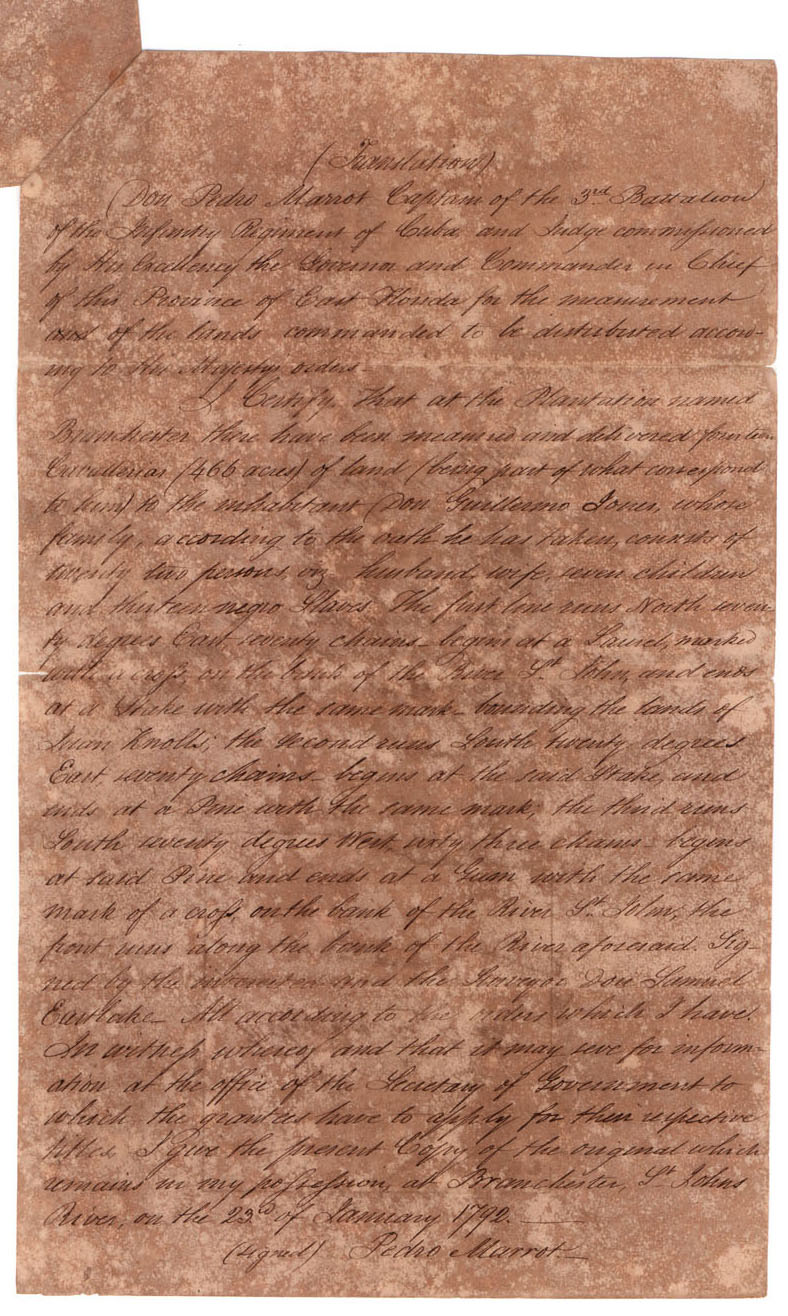 (Translation)
Don Pedro Marrot Captain of the 3rd Battalion
of the Infantry Regiment of Cuba and Judge commissioned
by His Excellency the Governor and Commander in Chief
of this Province of East Florida for the measurement
and of the lands commanded to be distributed accord-
ing to His Majestys orders.
I Certify, that at the Plantation named
Branchester there have been measured and delivered fourteen
Cavallerias (466 acres) of land (being part of what correspond
to him) to the inhabitant Don Guillermo Jones, whose
family, according to the oath he has taken, consists of
twenty two persons, viz husband, wife, seven children
and thirteen negro Slaves. The first line runs North seven-
ty degrees East seventy chains - begins at a Laurel, marked
with a cross, on the bank of the River St. John, and ends
at a Stake with the same mark - bounding the lands of
Juan Knolls; the second runs South twenty degrees
East, seventy chains - begins at the said Stake, and
ends at a Pine with the same mark, the third runs
South seventy degrees West, sixty three chains - begins
at said Pine and ends at a Gum with the same
mark of a cross, on the bank of the River St. John; the
front runs along the bank of the River aforesaid. Sig-
ned by the interested and the Surveyor Don Samuel
Eastlake - All according to the orders which I have.
In witness whereof, and that it may seve for inform-
ation at the office of the Secretary of Government to
which the grantees have to apply for their respective
titles, I give the present Copy of the original which
remains in my possession, at Branchester, St. Johns
River, on the 23d of January 1792.
(signed) Pedro Marrot